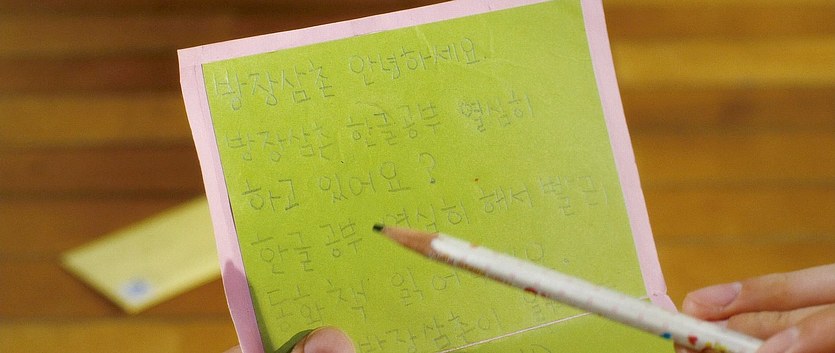 방장삼촌 안녕하세요
방장삼촌, 한글공부 열심히
하고 있어요?
한글 공부 열심히 해서 빨리
동화책 읽어
방장삼촌이